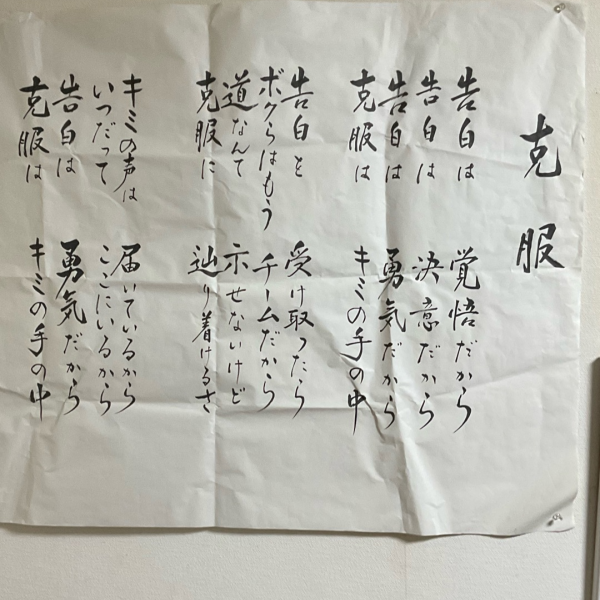 克服
告白は 覚悟だから
告白は 決意だから
告白は 勇気だから
克服は キミの手の中
告白を 受け取ったら
ボクらはもう チームだから
道なんて 示せないけど
克服に 辿り着けるさ
キミの声は 届いているから
いつだって ここにいるから
告白は 勇気だから
克服は キミの手の中